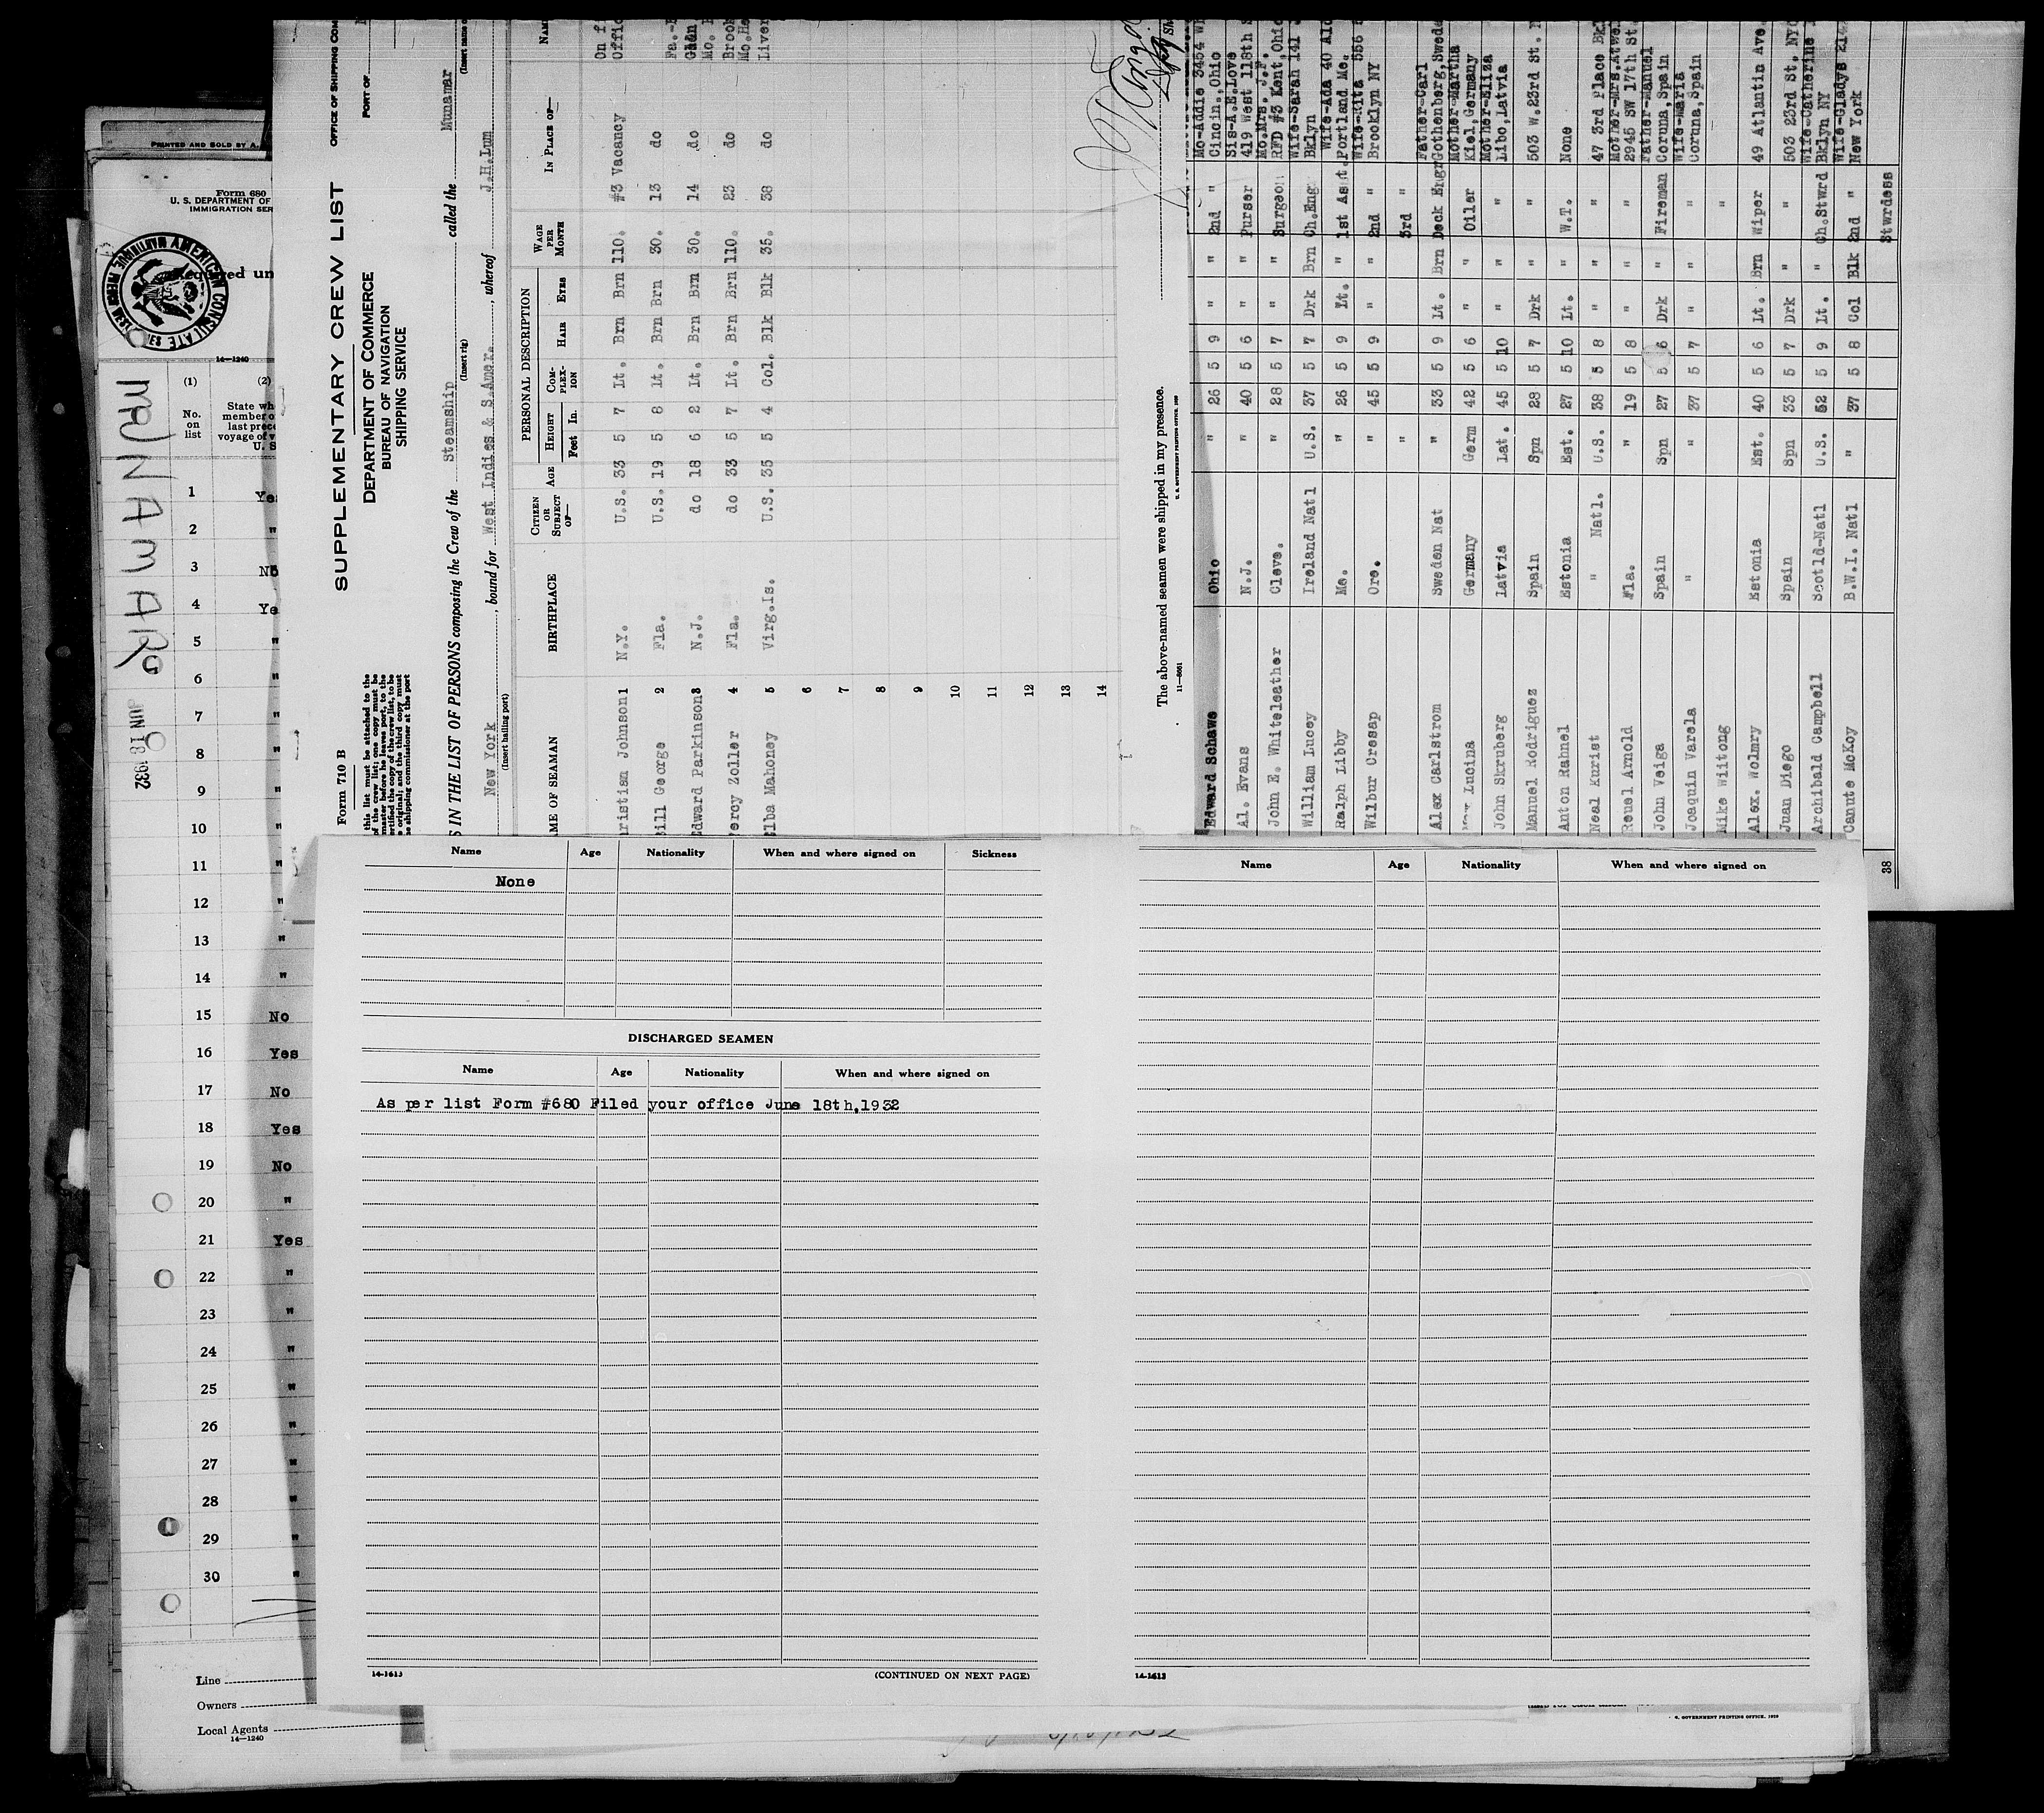 PRINTED AND SOLD BY A.
Form 680
U. S. DEPARTMENT OF
IMMIGRATION SER
AMERICAN CONSULATE
14—1240
MUNAMAR
JUN 18 1932
(1) (2)
No. on list
State wh
member o
last prece
voyage of v
U. S
1 Ye
2 "
3 No
4 Ye
5 "
6 "
7 "
8 "
9 "
10 "
11 "
12 "
13 "
14 "
15 No
16 Yes
17 No
18 Yes
19 No
20 "
21 Yes
22 "
23 "
24 "
25 "
26 "
27 "
28 "
29 "
30 "
Line
Owners
Local Agents
14—1240
Form 710 B
SUPPLEMENTARY CREW LIST
OFFICE OF SHIPPING COM
DEPARTMENT OF COMMERCE
BUREAU OF NAVIGATION
SHIPPING SERVICE
PORT OF
this list must be attached to the
of the crew list, one copy must be
master before he leaves port, to the
ertified the copy of the crew list, to be
e original; and the third copy must
he shipping commissioner at the port
S IN THE LIST OF PERSONS composing the Crew of the Steamship called the Munamar
(Insert rig) (Insert name o
New York, bound for West Indies & S.Amer., whereof J.H.Lum
(Insert hailing port)
AME OF SEAMAN BIRTHPLACE CITIZEN OR SUBJECT OF— AGE PERSONAL DESCRIPTION HEIGHT Feet In. COMPLEXION HAIR EYES WAGE PER MONTH IN PLACE OF— NAM
ristian Johnson 1 N.Y. U.S. 33 5 7 Lt. Brn Brn 110. #3 Vacancy On f
Offic
ill George 2 Fla. U.S. 19 5 8 Lt. Brn Brn 30. 13 do
dward Parkinson 3 N.J. do 18 6 2 Lt. Brn Brn 30. 14 do
ercy Zoller 4 Fla. do 33 5 7 Lt. Brn Brn 110. 23 do
lba Mahoney 5 Virg.Is. U.S. 35 5 4 Col. Blk Blk 35. 38 do Liver
6
7
8
9
10
11
12
13
14
The above-named seamen were shipped in my presence.
11—8661
U. S. GOVERNMENT PRINTING OFFICE
Mo-Addie 3454 W
Edward Schawe Ohio " 26 5 9 " " 2nd " Cincin.,Ohio
Sis-A.E.Love
Al. Evans N.J. " 40 5 6 " " Purser 419 West 118th S
Mo.Mrs. J.F.
John E. Whiteleather Cleve. " 28 5 7 " " Surgeon RFD #3 Kent,Ohio
Wife-Sarah 141
William Lucey Ireland Natl U.S. 37 5 7 Drk Brn Ch.Eng Bklyn
Wife-Ada 40 Al
Ralph Libby Me. " 26 5 9 Lt. " 1st Asst Portland Me.
Wife-Rita 556
Wilbur Cresap Ore. " 45 5 9 " " 2nd " Brooklyn NY
" 3rd "
Father-Carl
Alex Carlstrom Sweden Nat " 33 5 9 Lt. Brn Deck Engr Gothenberg,Swede
Mother-Martha
Lucina Germany Germ 42 5 6 " " Oiler Kiel,Germany
Mother-Eliza
John Skruberg Latvia Lat. 45 5 10 " " " Libo,Latvia
Manuel Rodriguez Spain Spn 28 5 7 Drk " " 503 W.23rd St. N
Anton Rahnel Estonia Est. 27 5 10 Lt. " W.T. None
Neal Kurist " Natl. U.S. 38 5 8 " " " 47 3rd Place Bk
Mother-Mrs.Atwel
Reuel Arnold Fla. " 19 5 8 " " " 2945 SW 17th St.
Father-Manuel
John Veiga Spain Spn 27 5 6 Drk " Fireman Coruna,Spain
Wife-Maria
Joaquin Varela " " 37 5 7 " " " Coruna,Spain
Mike Wiitong "
Alex. Wolmry Estonia Est. 40 5 6 Lt. Brn Wiper 49 Atlantin Ave.
Juan Diego Spain Spn 33 5 7 Drk " " 503 23rd St. NYC
Wife-Catherine
Archibald Campbell Scotld-Natl U.S. 52 5 9 Lt. " Ch.Stwrd Bklyn NY
Wife-Gladys 214
Canute McKoy B.W.I. Natl " 37 5 8 Col Blk 2nd " New York
38 Stwrdess
Name Age Nationality When and where signed on Sickness
None
DISCHARGED SEAMEN
Name Age Nationality When and where signed on
As per list Form #680 Filed your office June 18th,1932
14-1613
(CONTINUED ON NEXT PAGE)
Name Age Nationality When and where signed on
14-1613
GOVERNMENT PRINTING OFFICE